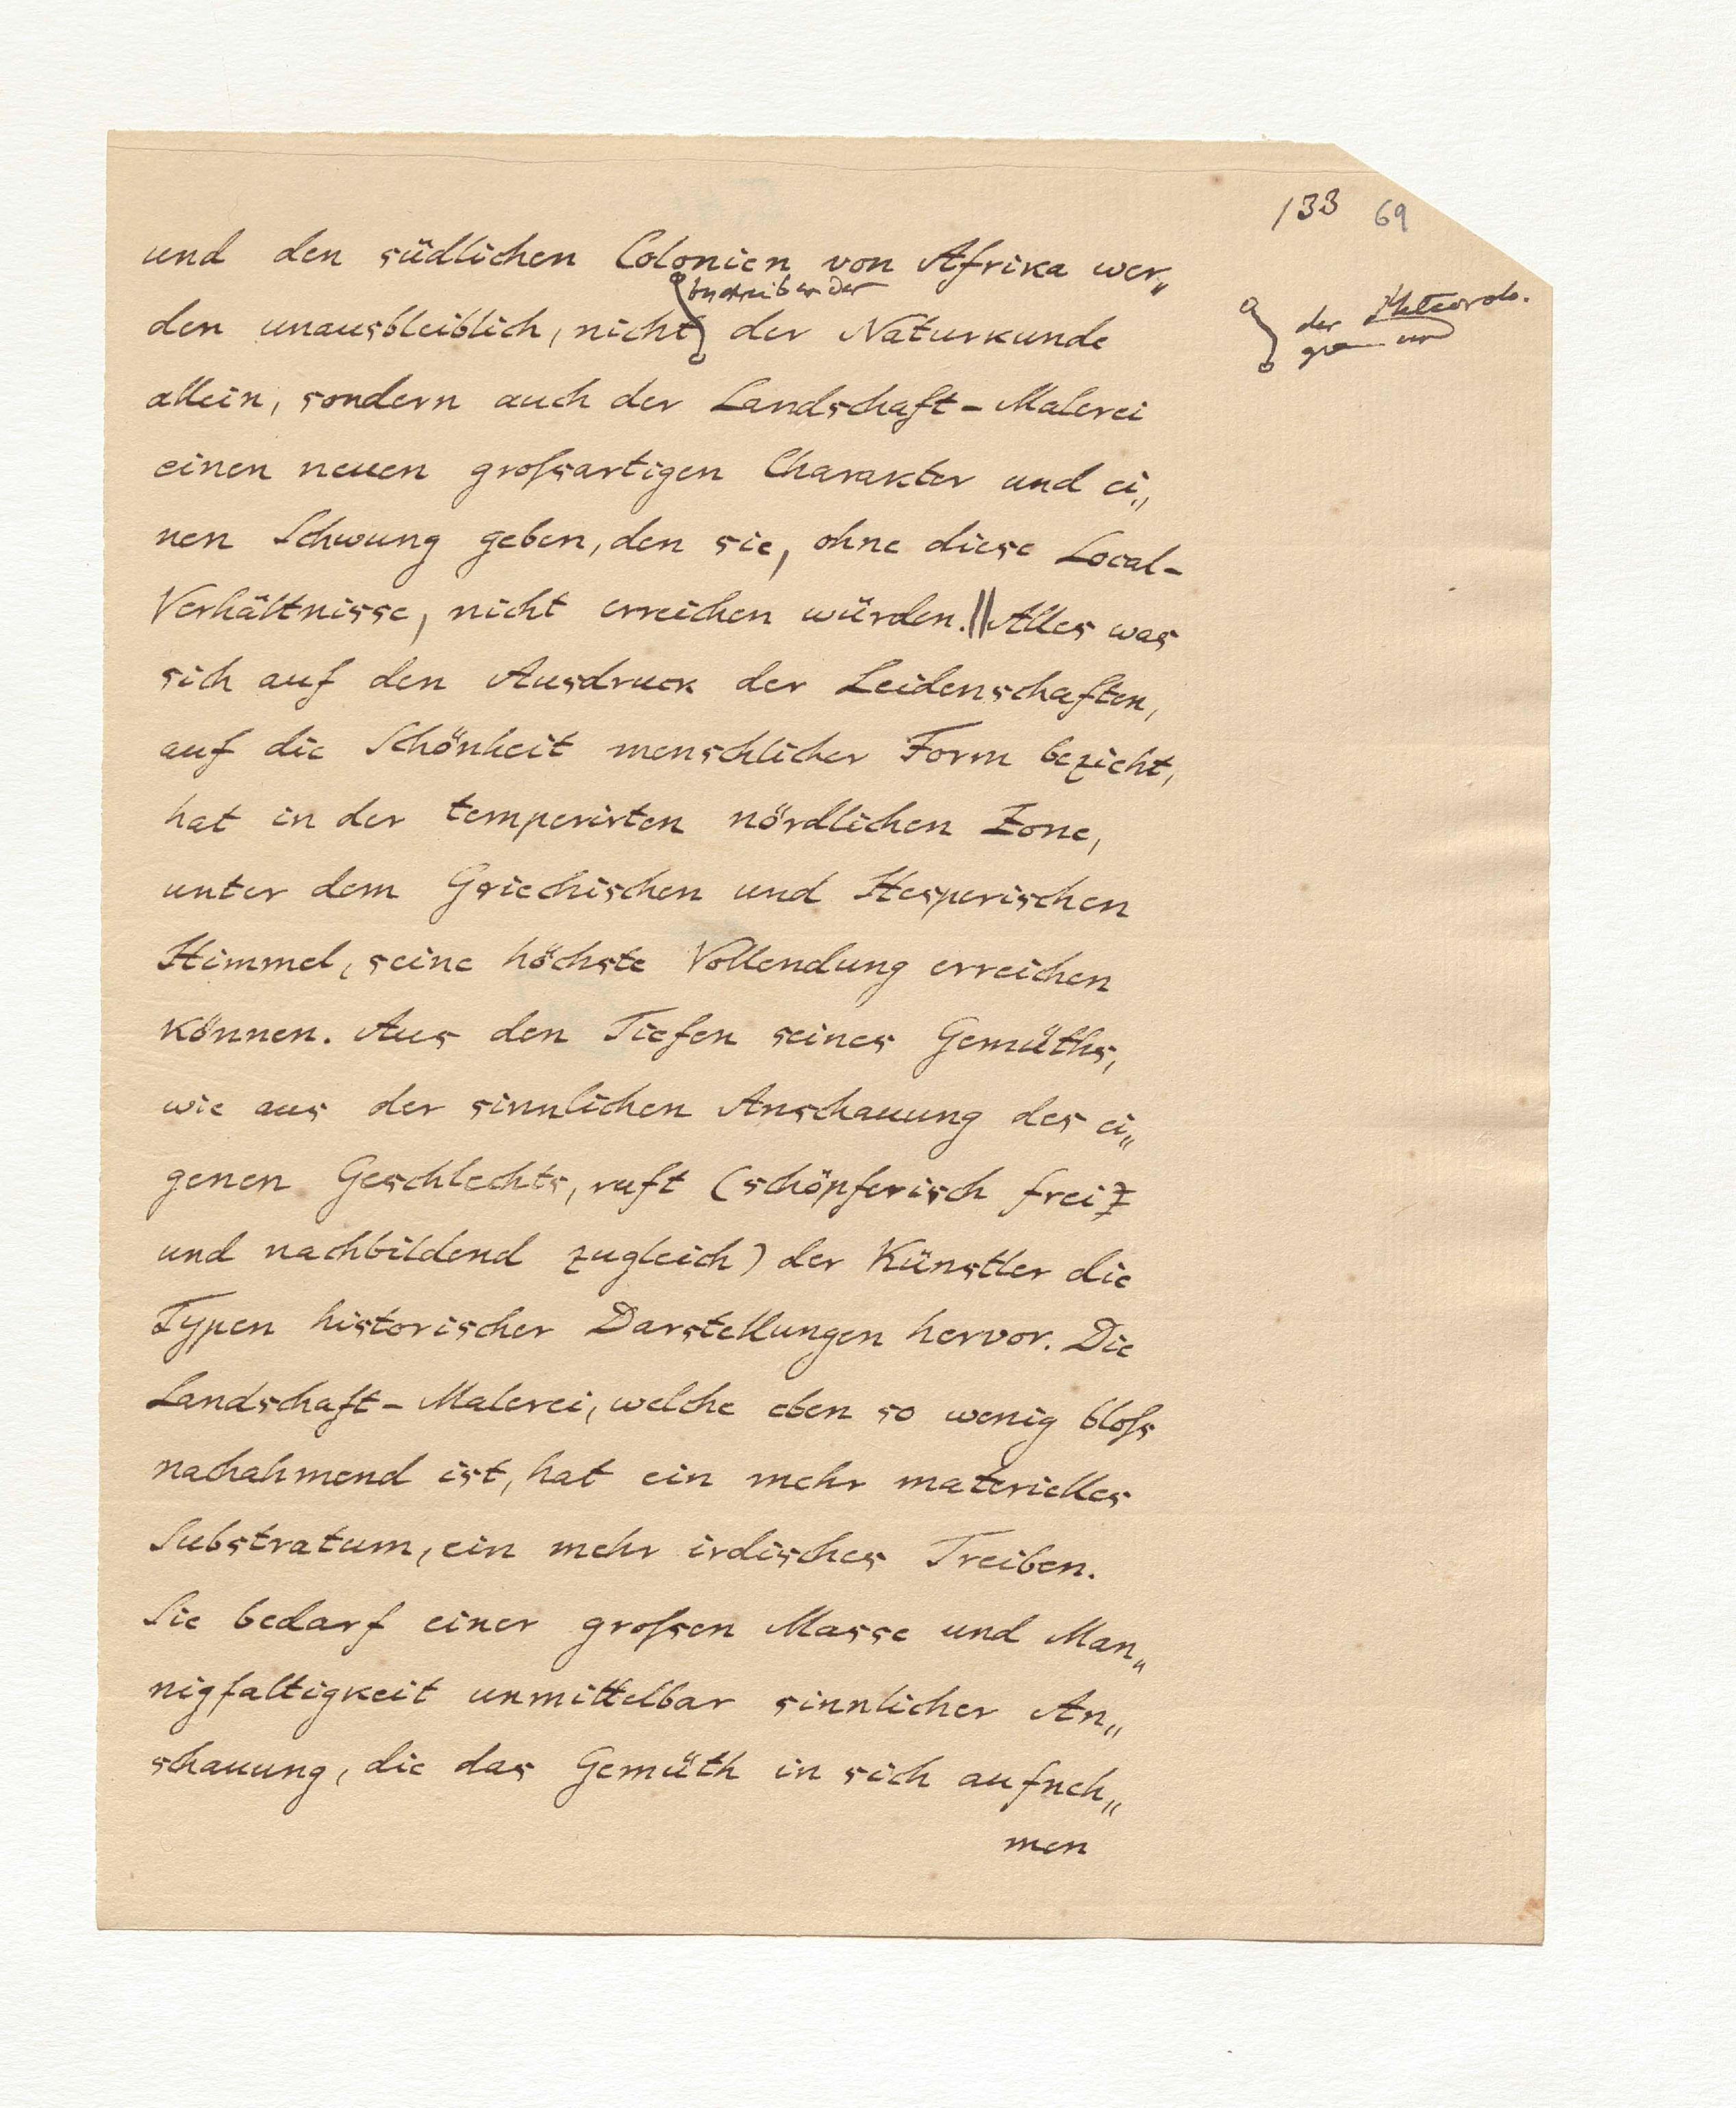 133 69
und den südlichen Colonien von Afrika wer„
beschreibender
den unausbleiblich, nicht der Naturkunde
der Meteorolo-
und
allein, sondern auch der Landschaft-Malerei
einen neuen groſsartigen Charakter und ei„
nen Schwung geben, den sie, ohne diese Local-
Verhältnisse, nicht erreichen würden.||Alles was
sich auf den Ausdruck der Leidenschaften,
auf die Schönheit menschlicher Form bezieht,
hat in der temperirten nördlichen Zone,
unter dem Griechischen und Hesperischen
Himmel, seine höchste Vollendung erreichen
können. Aus den Tiefen seines Gemüths,
wie aus der sinnlichen Anschauung des ei„
genen Geschlechts, ruft (schöpferisch frei
und nachbildend zugleich) der Künstler die
Typen historischer Darstellungen hervor. Die
Landschaft-Malerei, welche eben so wenig bloſs
nachahmend ist, hat ein mehr materielles
Substratum, ein mehr irdisches Treiben.
Sie bedarf einer groſsen Masse und Man„
nigfaltigkeit unmittelbar sinnlicher An„
schauung, die das Gemüth in sich aufneh„
men